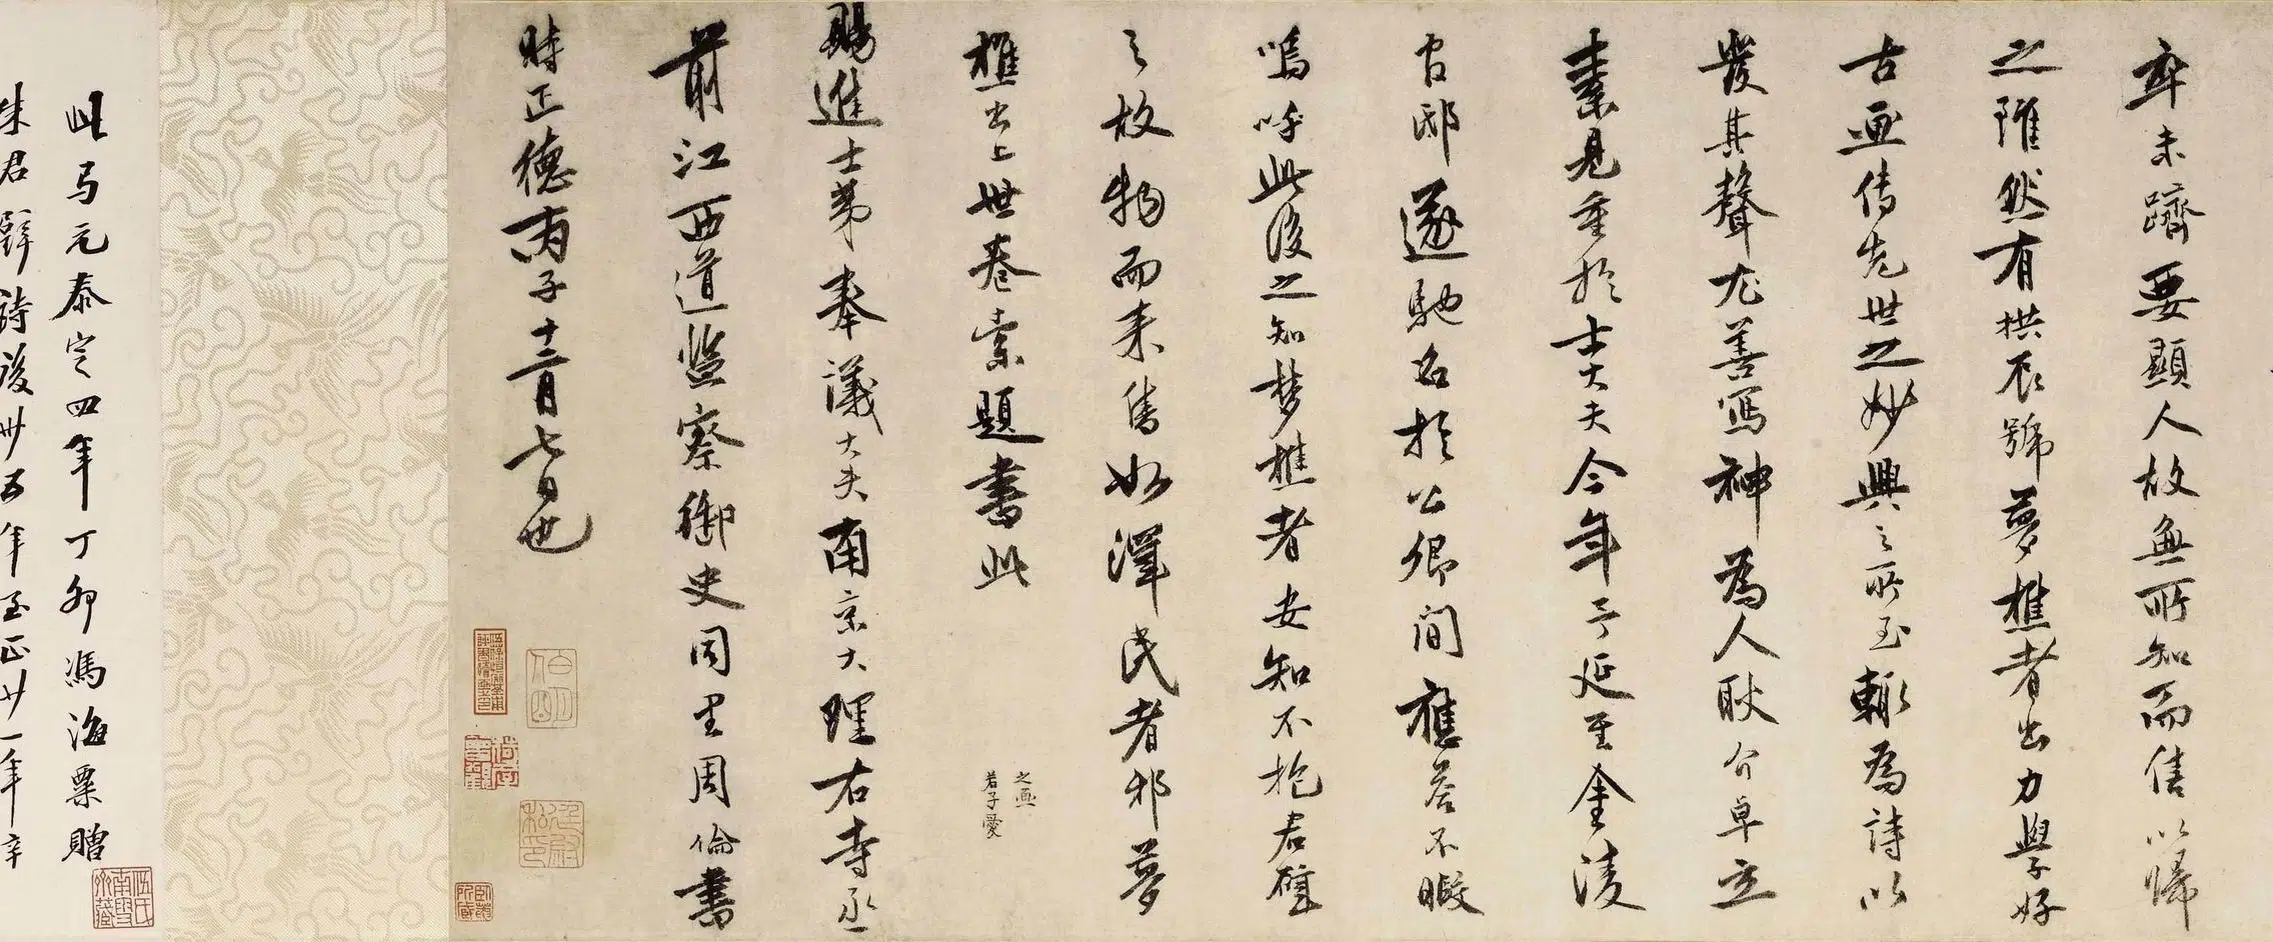 卒未躋要顯人故無所知而售以歸
之隴然有拱辰號夢樵者出力學好
古画传先世之妙興之所至輙為詩以
發其聲尤善寫神為人耿介卓立
素見重於士大夫今年予延至金陵
官邸遂馳名於公卿間應荅不暇
嗚呼此後之知梦樵者安知不抱君璧
之故物而来售如澤民者邪夢
樵出上世卷索題書此
之画
君子愛
賜進士第奉議大夫南京大理右寺丞
前江西道監察御史同里周倫書
時正德丙子十二月七日也
此马元泰定四年丁卯馮海粟贈
朱君璧詩後卅五年至正廿一年辛
伍氏南雪齋藏